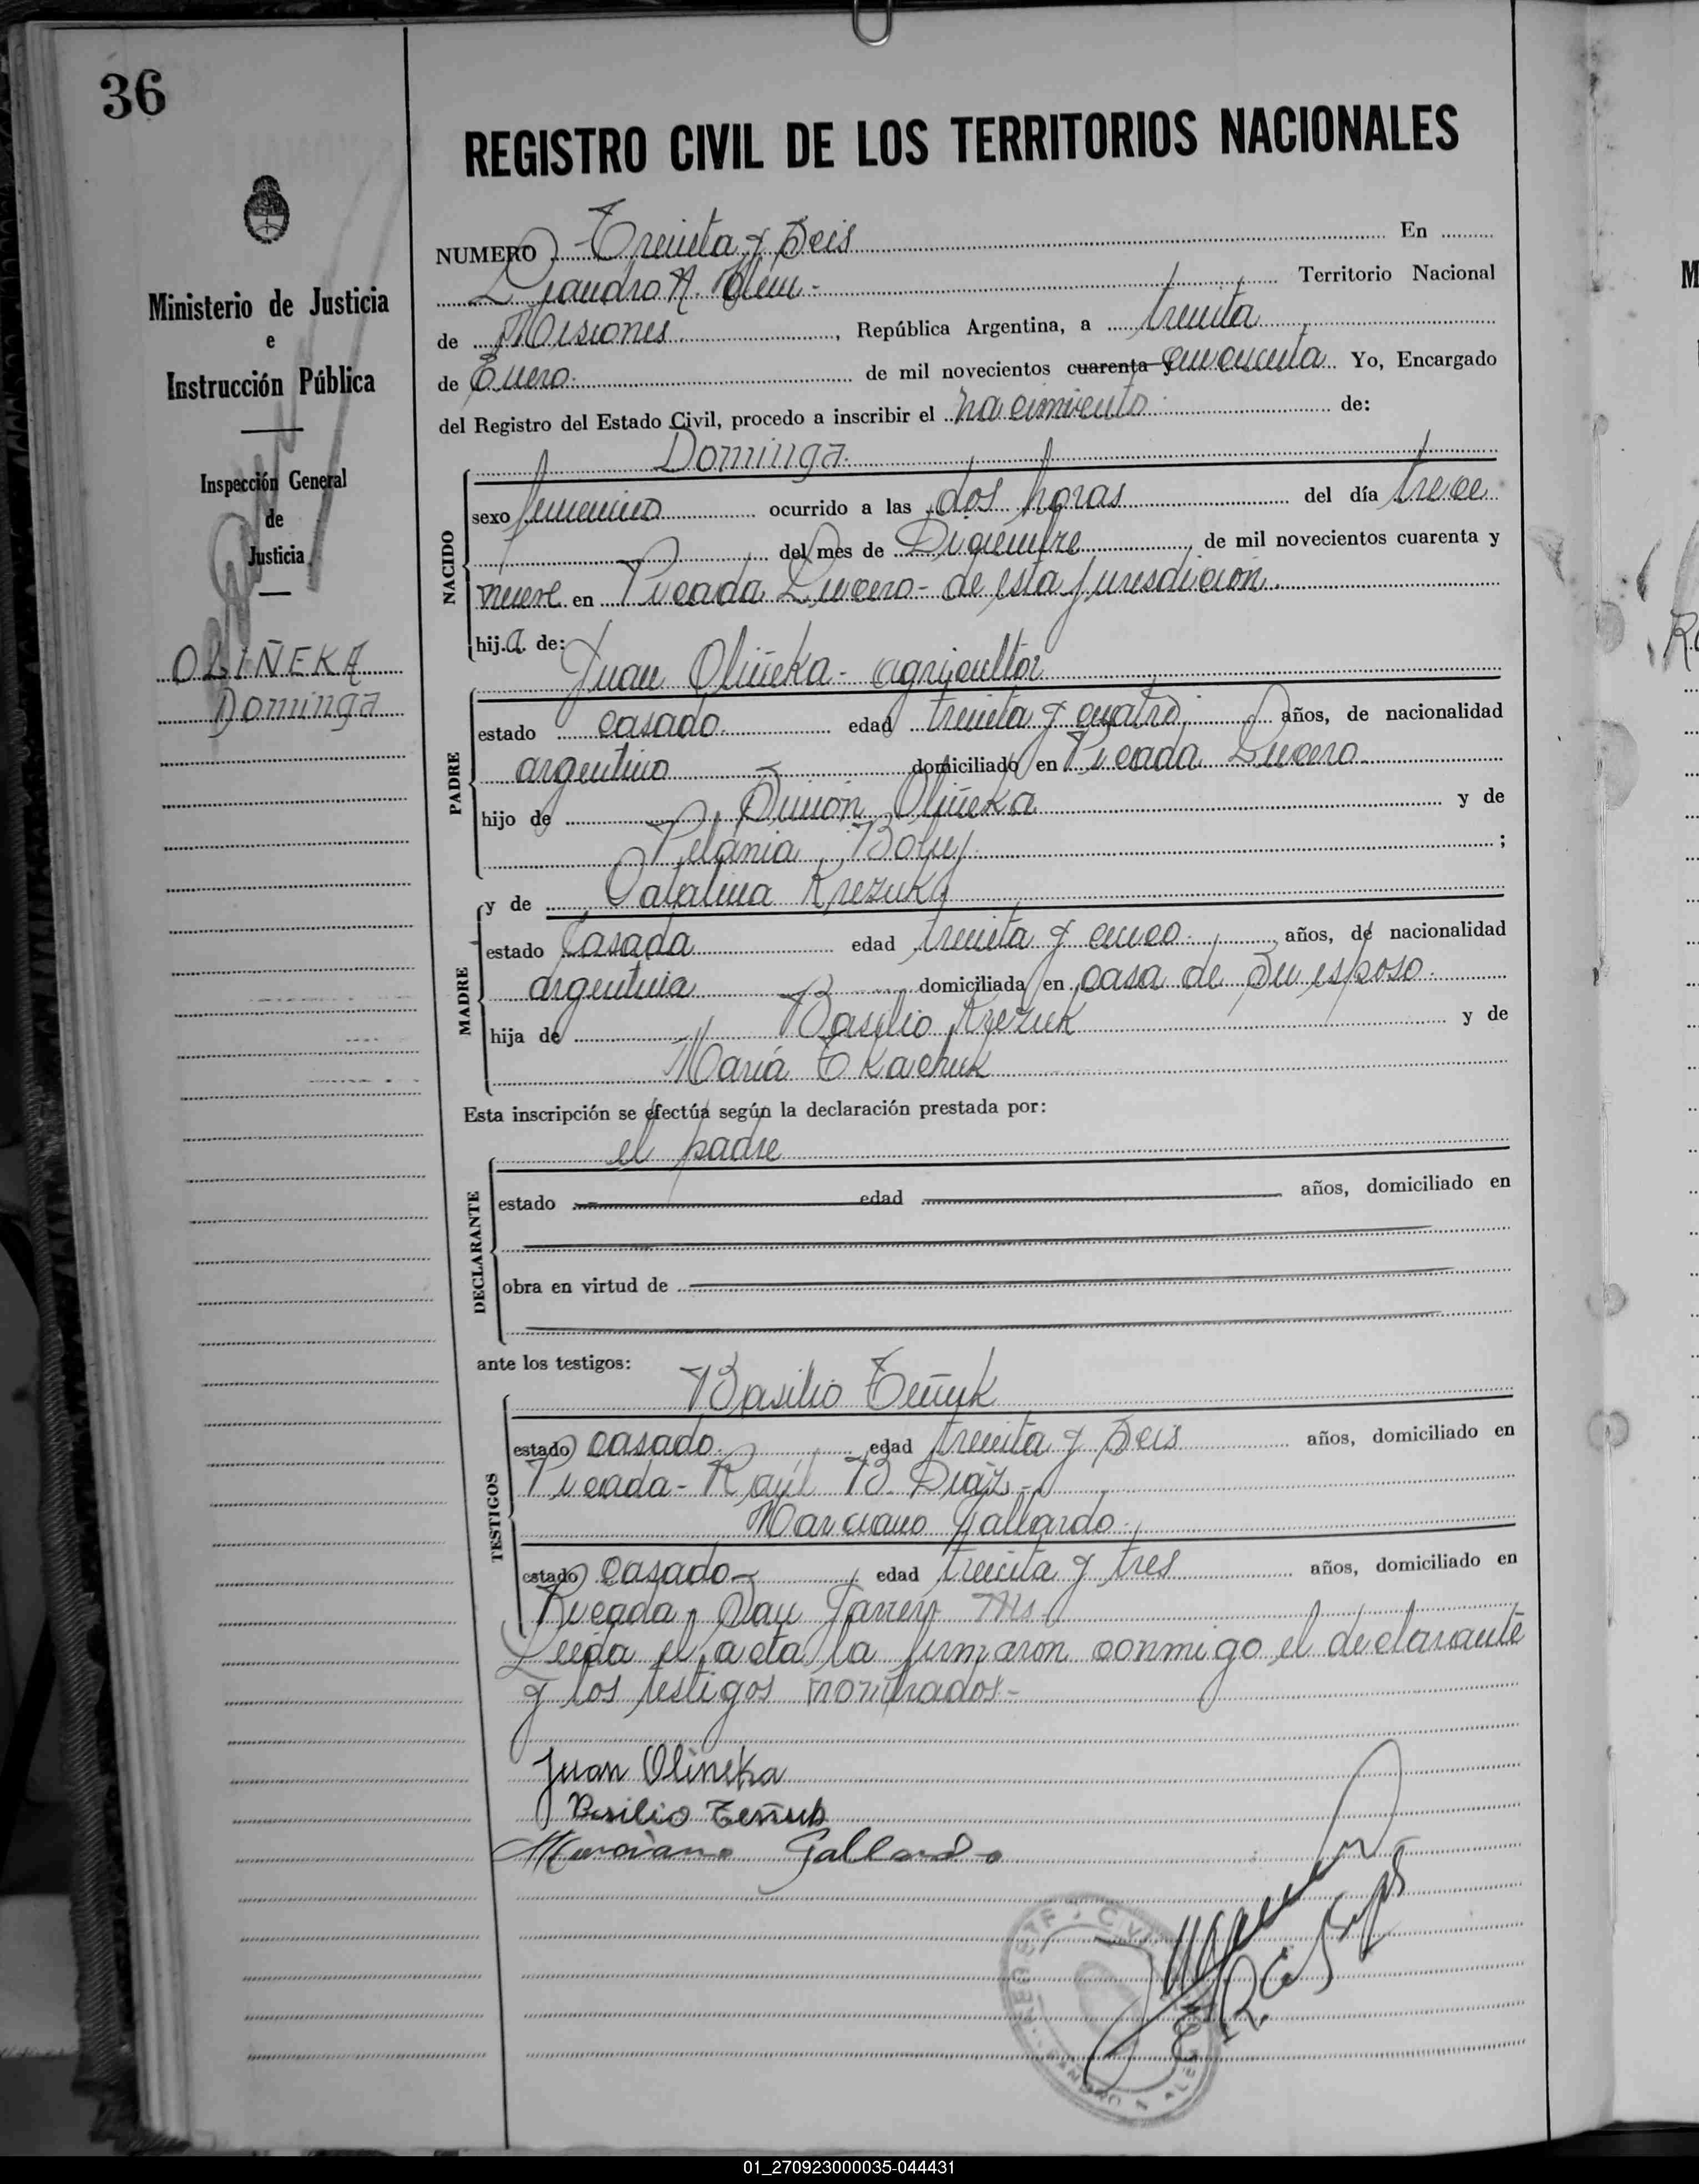 36
REGISTRO CIVIL DE LOS TERRITORIOS NACIONALES
Ministerio de Justicia
e
Instrucción Pública
Inspección General
de
Justicia
OLIÑEKA
Dominga
NUMERO Treinta y Seis En
Leandro N. Alem - Territorio Nacional
de Misiones, República Argentina, a treinta
de Enero de mil novecientos cuarenta y cincuenta Yo, Encargado
del Registro del Estado Civil, procedo a inscribir el nacimiento de:
Dominga
NACIDO
sexo femenino ocurrido a las dos horas del día trece
del mes de Diciembre, de mil novecientos cuarenta y
nueve en Picada Lucero - de esta jurisdicion.
hija de:
Juan Oliñeka - agricultor
PADRE
estado casado edad treinta y cuatro años, de nacionalidad
argentino domiciliado en Picada Lucero
hijo de Simón Oliñeka y de
Pelania ;
y de Catalina
MADRE
estado Casada edad treinta y cinco años, de nacionalidad
argentina domiciliada en casa de su esposo.
hija de Basilio y de
María Tkachuk
Esta inscripción se efectúa según la declaración prestada por:
el padre
DECLARANTE
estado edad años, domiciliado en
obra en virtud de
ante los testigos:
Basilio Teñuk
TESTIGOS
estado casado edad treinta y seis años, domiciliado en
Picada - Raúl B. Diaz -
Marciano Gallardo
estado Casado - edad treinta y tres años, domiciliado en
Picada
Leída el acta la firmaron conmigo el declarante
y los testigos nombrados -
Juan Olineka
Basilio Teñuk
Marciano Gallardo
01_270923000035-044431